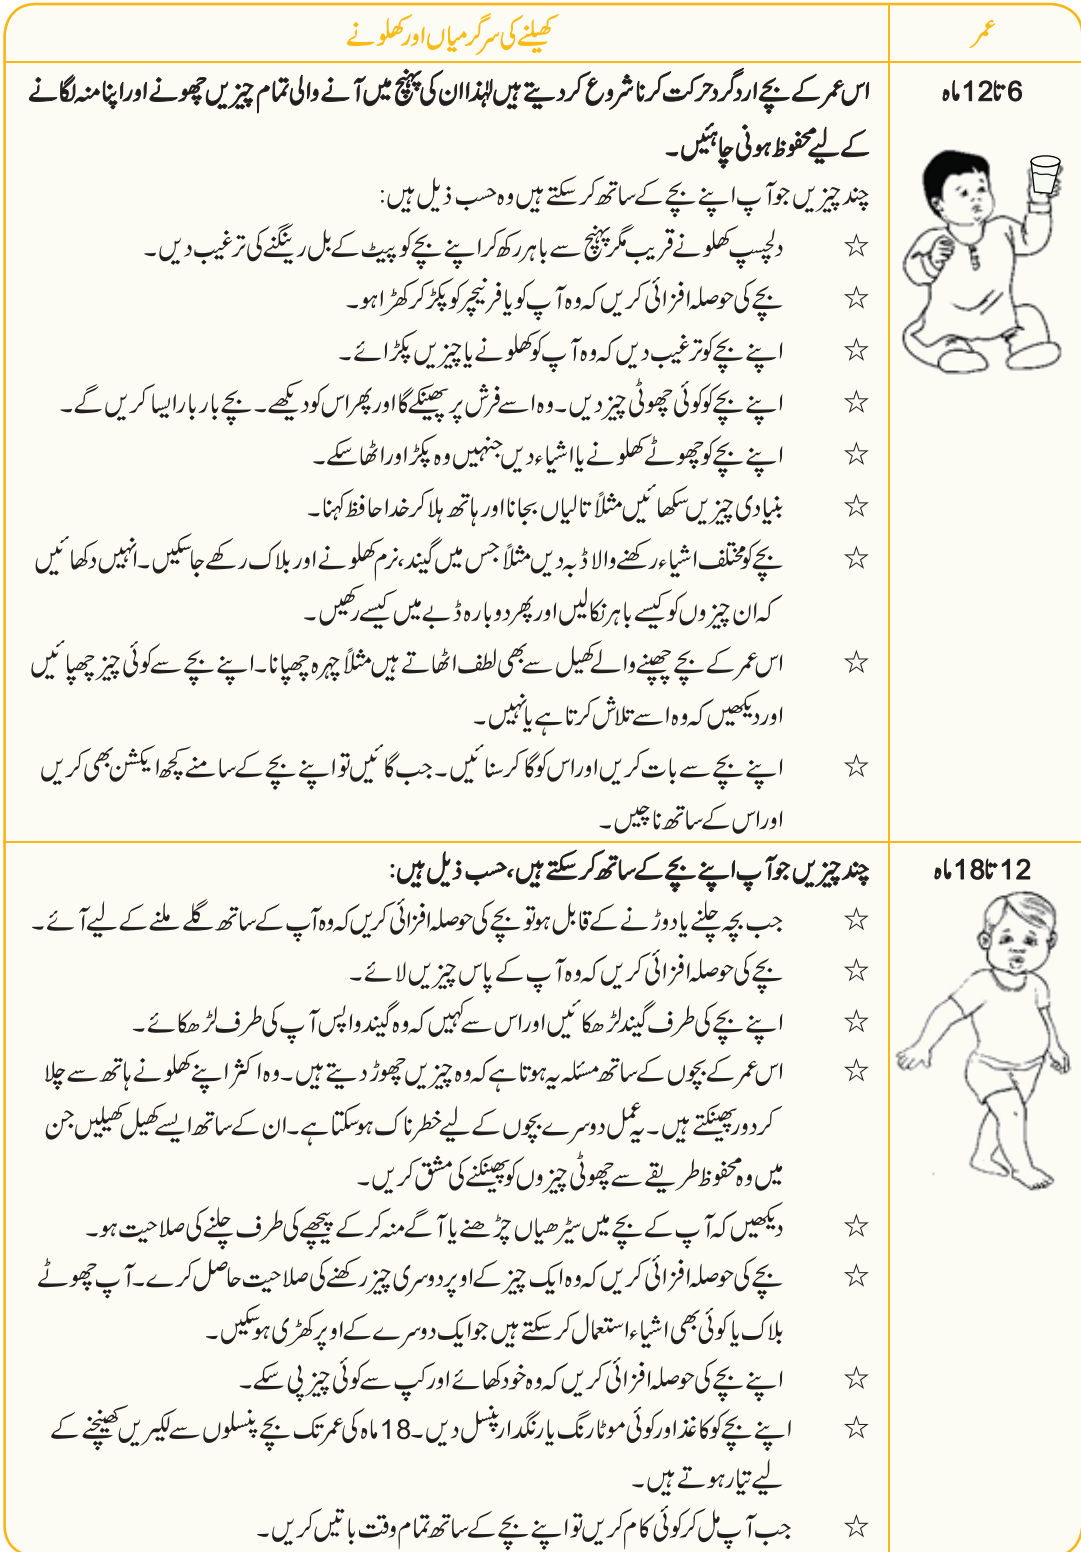 عمر
کھیلنے کی سرگرمیاں اور کھلونے
6 تا 12 ماہ
اس عمر کے بچے ارد گرد حرکت کرنا شروع کر دیتے ہیں لہٰذا ان کی پہنچ میں آنے والی تمام چیزیں چھونے اور اپنا منہ لگانے
کے لیے محفوظ ہونی چاہئیں۔
چند چیزیں جو آپ اپنے بچے کے ساتھ کر سکتے ہیں وہ حسب ذیل ہیں:
☆ دلچسپ کھلونے قریب مگر پہنچ سے باہر رکھ کر اپنے بچے کو پیٹ کے بل رینگنے کی ترغیب دیں۔
☆ بچے کی حوصلہ افزائی کریں کہ وہ آپ کو یا فرنیچر کو پکڑ کر کھڑا ہو۔
☆ اپنے بچے کو ترغیب دیں کہ وہ آپ کو کھلونے یا چیزیں پکڑائے۔
☆ اپنے بچے کو کوئی چھوٹی چیز دیں۔ وہ اسے فرش پر پھینکے گا اور پھر اس کو دیکھے۔ بچے بار بار ایسا کریں گے۔
☆ اپنے بچے کو چھوٹے کھلونے یا اشیاء دیں جنہیں وہ پکڑ اور اٹھا سکے۔
☆ بنیادی چیزیں سکھائیں مثلاً تالیاں بجانا اور ہاتھ ہلا کر خدا حافظ کہنا۔
☆ بچے کو مختلف اشیاء رکھنے والا ڈبہ دیں مثلاً جس میں گیند، نرم کھلونے اور بلاک رکھے جا سکیں۔ انہیں دکھائیں
کہ ان چیزوں کو کیسے باہر نکالیں اور پھر دوبارہ ڈبے میں کیسے رکھیں۔
☆ اس عمر کے بچے چھپنے والے کھیل سے بھی لطف اٹھاتے ہیں مثلاً چہرہ چھپانا۔ اپنے بچے سے کوئی چیز چھپائیں
اور دیکھیں کہ وہ اسے تلاش کرتا ہے یا نہیں۔
☆ اپنے بچے سے بات کریں اور اس کو گا کر سنائیں۔ جب گائیں تو اپنے بچے کے سامنے کچھ ایکشن بھی کریں
اور اس کے ساتھ ناچیں۔
12 تا 18 ماہ
چند چیزیں جو آپ اپنے بچے کے ساتھ کر سکتے ہیں، حسب ذیل ہیں:
☆ جب بچہ چلنے یا دوڑنے کے قابل ہو تو بچے کی حوصلہ افزائی کریں کہ وہ آپ کے ساتھ گلے ملنے کے لیے آئے۔
☆ بچے کی حوصلہ افزائی کریں کہ وہ آپ کے پاس چیزیں لائے۔
☆ اپنے بچے کی طرف گیند لڑھکائیں اور اس سے کہیں کہ وہ گیند واپس آپ کی طرف لڑھکائے۔
☆ اس عمر کے بچوں کے ساتھ مسئلہ یہ ہوتا ہے کہ وہ چیزیں چھوڑ دیتے ہیں۔ وہ اکثر اپنے کھلونے ہاتھ سے چلا
کر دور پھینکتے ہیں۔ یہ عمل دوسرے بچوں کے لیے خطرناک ہو سکتا ہے۔ ان کے ساتھ ایسے کھیل کھیلیں جن
میں وہ محفوظ طریقے سے چھوٹی چیزوں کو پھینکنے کی مشق کریں۔
☆ دیکھیں کہ آپ کے بچے میں سیڑھیاں چڑھنے یا آگے منہ کر کے پیچھے کی طرف چلنے کی صلاحیت ہو۔
☆ بچے کی حوصلہ افزائی کریں کہ وہ ایک چیز کے اوپر دوسری چیز رکھنے کی صلاحیت حاصل کرے۔ آپ چھوٹے
بلاک یا کوئی بھی اشیاء استعمال کر سکتے ہیں جو ایک دوسرے کے اوپر کھڑی ہو سکیں۔
☆ اپنے بچے کی حوصلہ افزائی کریں کہ وہ خود کھائے اور کپ سے کوئی چیز پی سکے۔
☆ اپنے بچے کو کاغذ اور کوئی موٹا رنگ یا رنگدار پنسل دیں۔ 18 ماہ کی عمر تک بچے پنسلوں سے لکیریں کھینچنے کے
لیے تیار ہوتے ہیں۔
☆ جب آپ مل کر کوئی کام کریں تو اپنے بچے کے ساتھ تمام وقت باتیں کریں۔